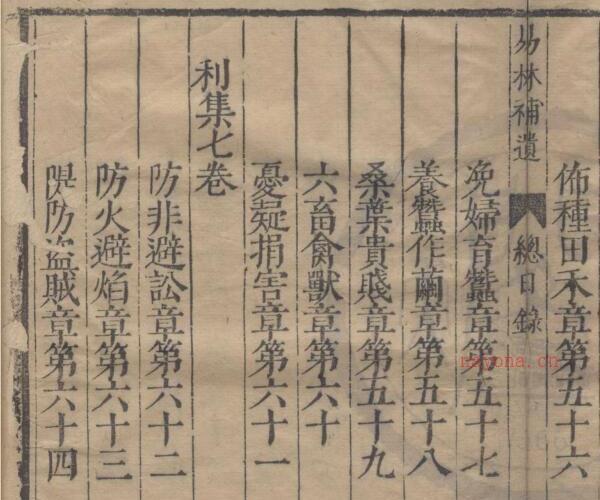 佈種田禾章第五十六
易林補遺 總目錄
浼婦育蠶章第五十七
養蠶作繭章第五十八
桑葉貴賤章第五十九
六畜禽獸章第六十
憂疑損害章第六十一
利集七卷
防非避訟章第六十二
防火避焰章第六十三
隄防盜賊章第六十四
nayona.cn